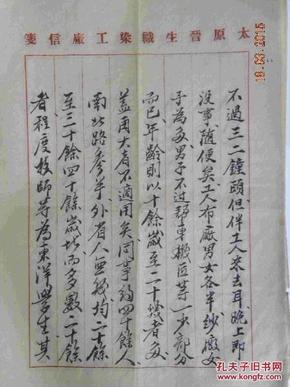 太原晉生織染工廠信箋
不過三二鐘頭但伴工人來去耳晚上則
沒事隨便矣工人布廠男女各半紗廠女
子為多男子不過整理機匠等一少部分
而已年齡則以十餘歲至二十幾者多
蓋再大者不適用矣同事約四十餘人
南北路參半外有人無幾均二十餘
至三十餘四十餘歲此而多數二十餘
者程度技師等為東洋學生其
18.03.2015